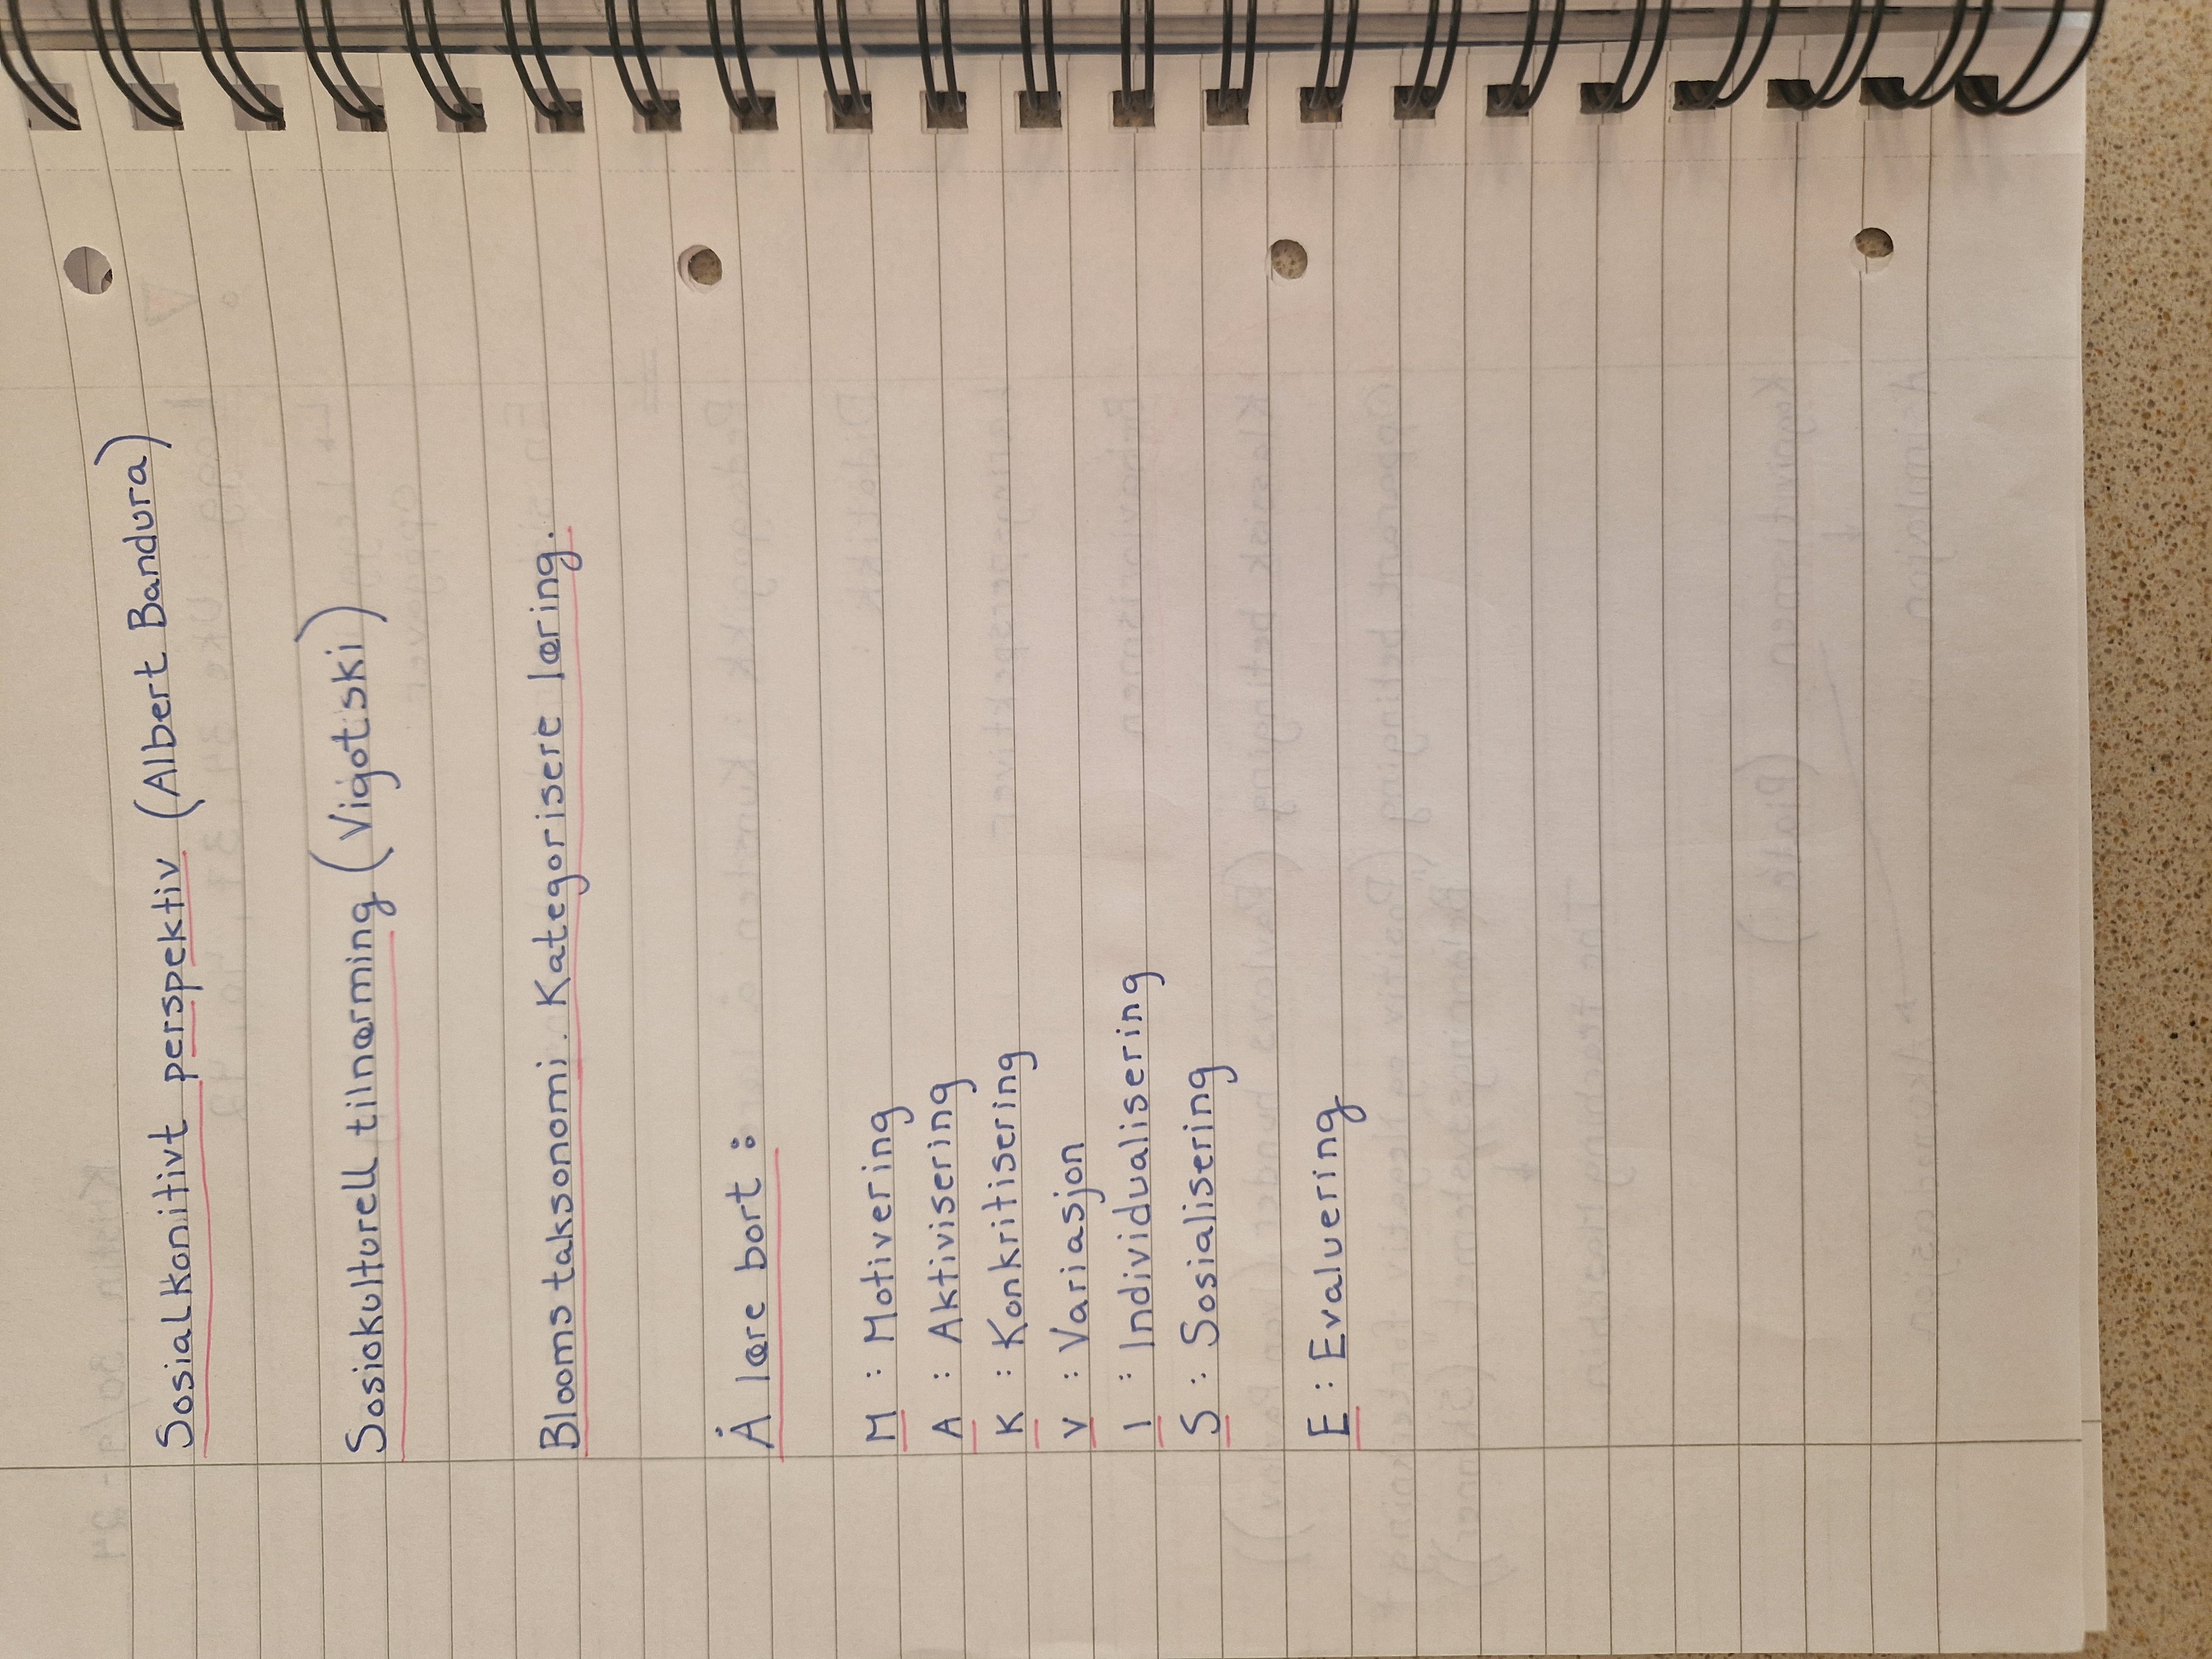 Sosialkonitivt perspektiv (Albert Bandura)
Sosiokulturell tilnærming (Vigotski)
Blooms taksonomi. Kategorisere læring.
Å lære bort:
M : Motivering
A : Aktivisering
K : Konkritisering
V : Variasjon
I : Individualisering
S : Sosialisering
E : Evaluering